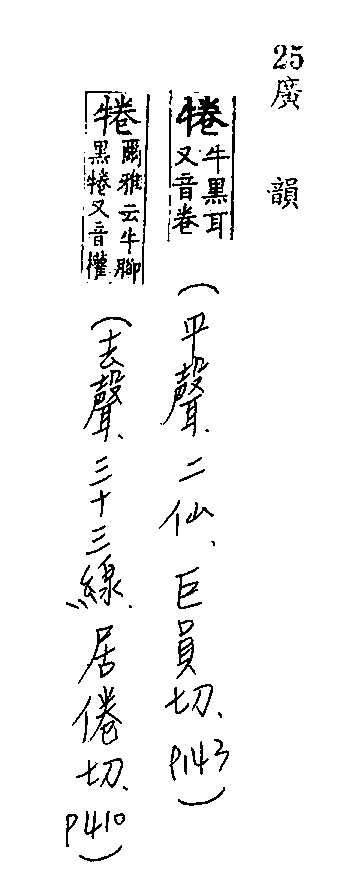 25
廣韻
犈 牛黑耳又音卷
(平聲、二仙、巨員切、P143)
犈 爾雅云牛腳黑犈又音權
(去聲、三十三線、居倦切、P410)